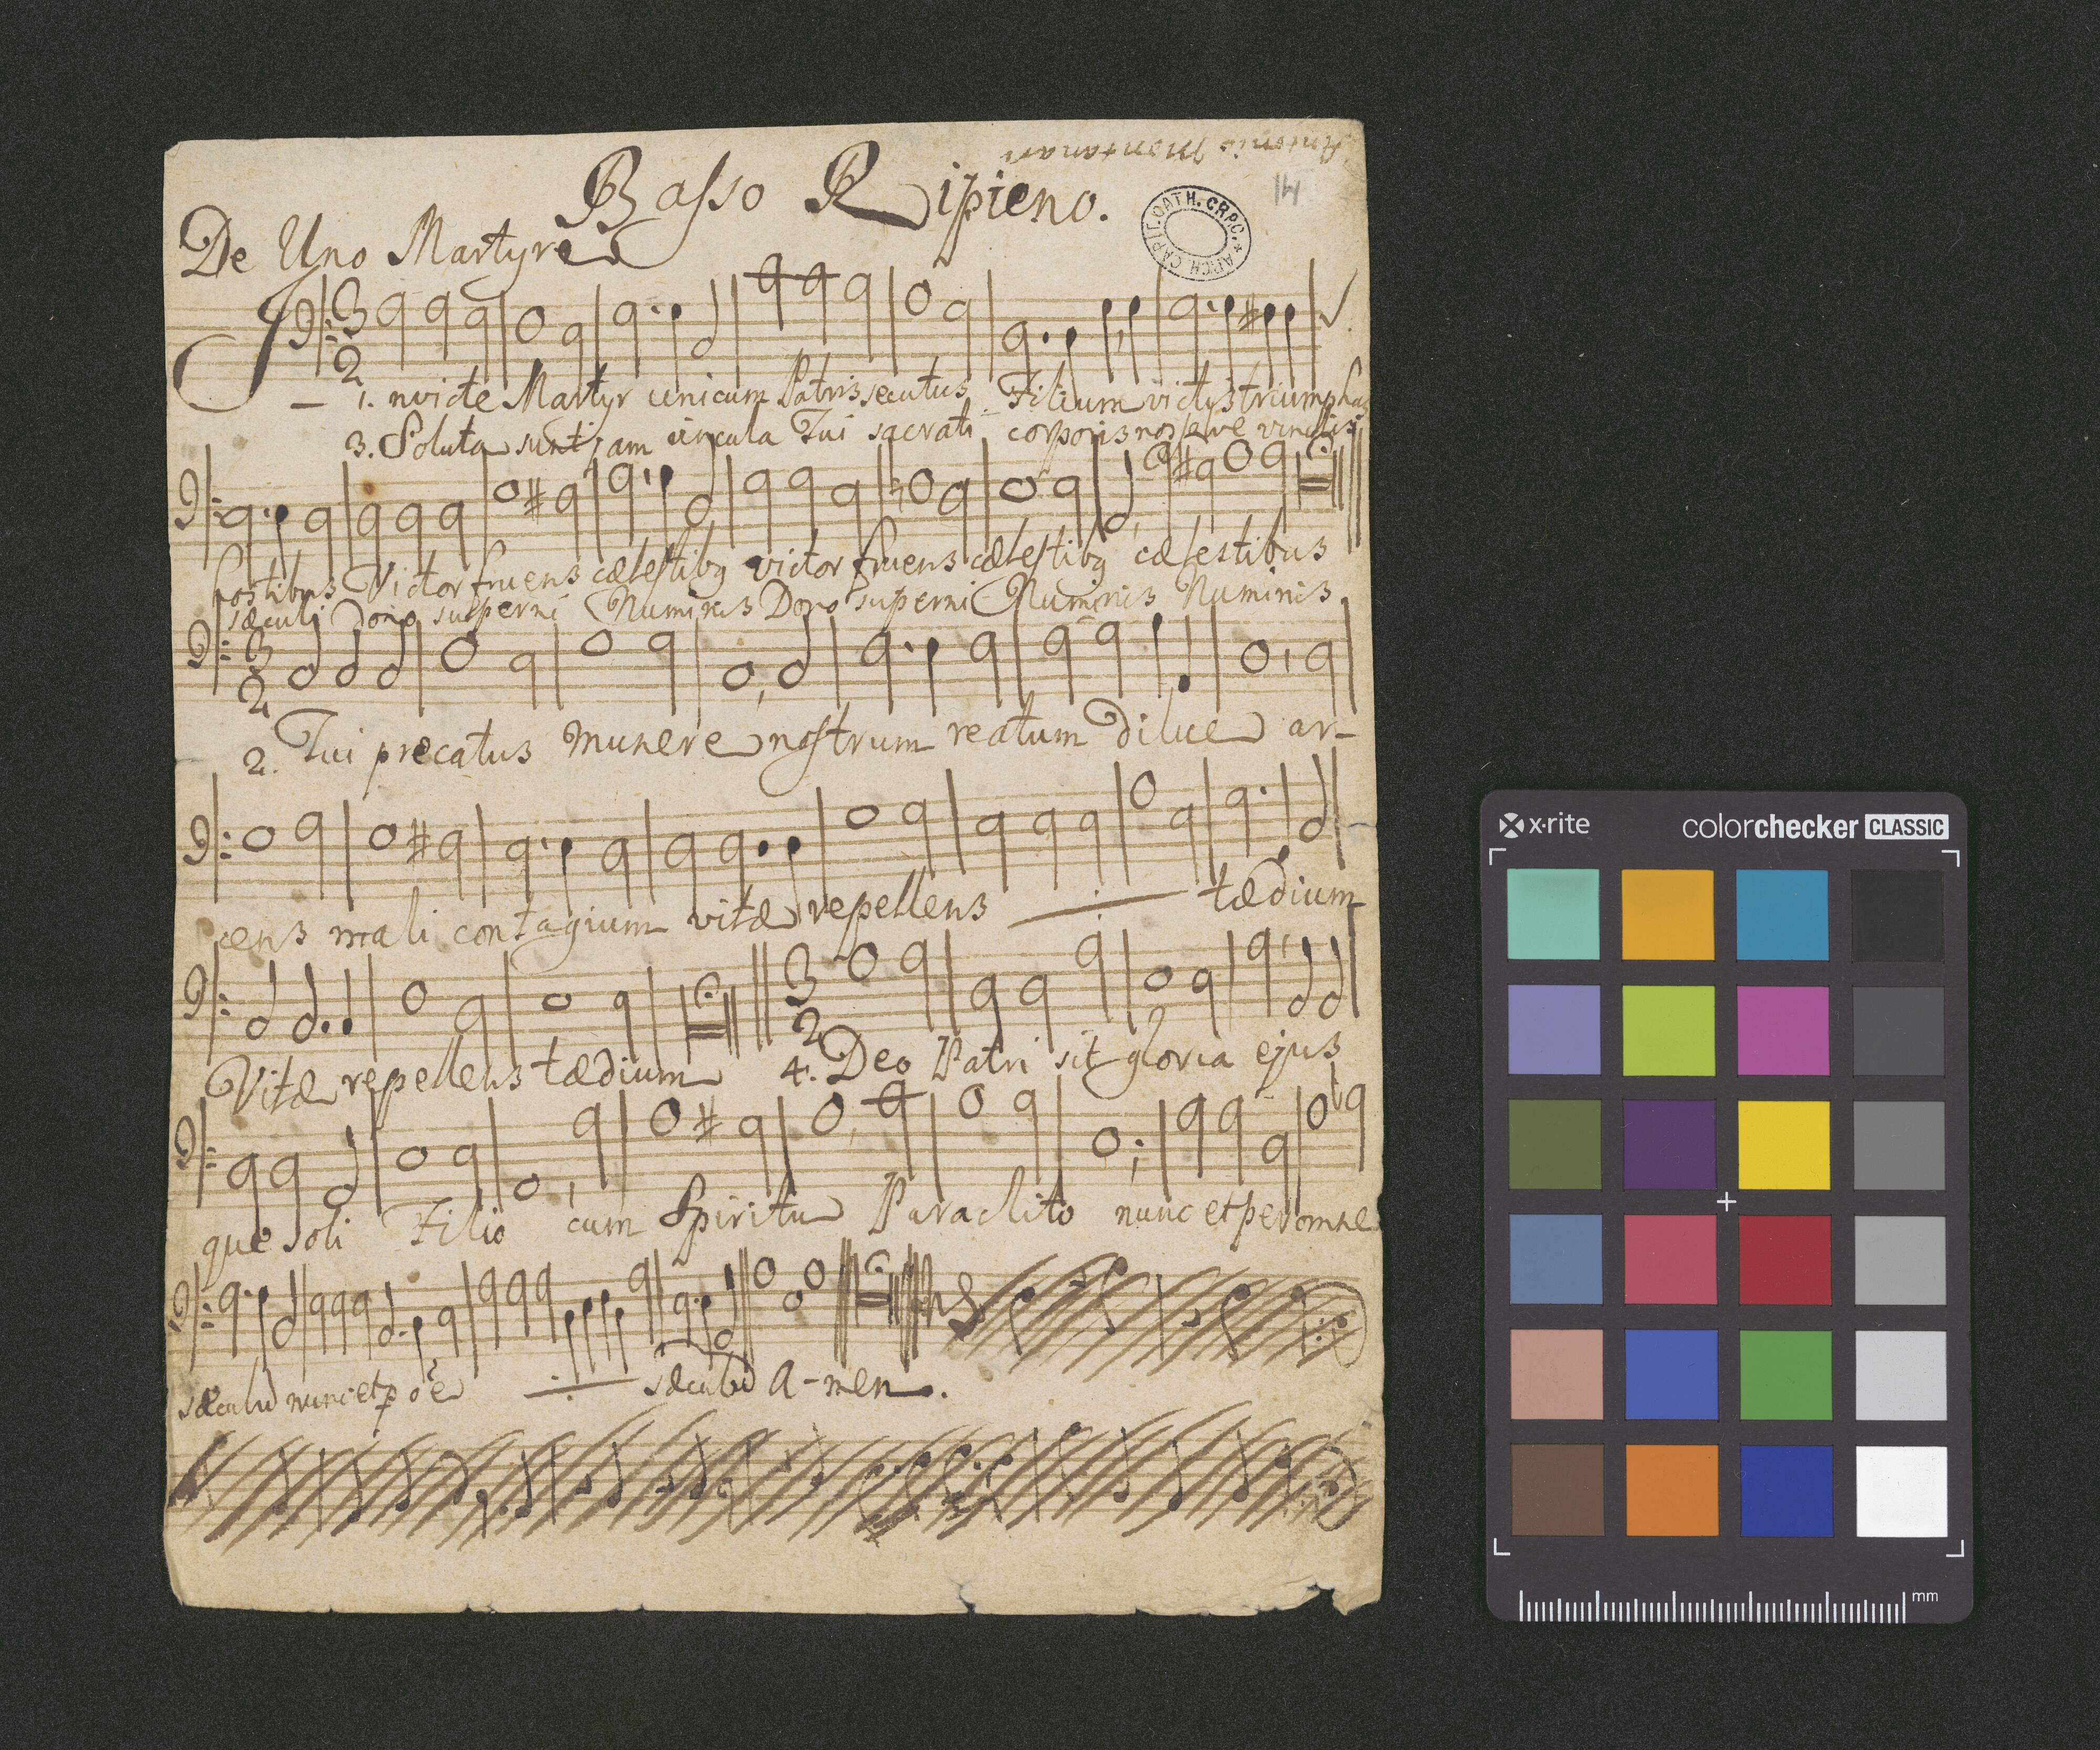 Antonio Montanari
14
Basso Ripieno.
ARCH. CAPIT. CATH. CRPC.
De Uno Martyre
3
2
1. Invicte Martyr unicum Patris secutus Filium victis triumphas
3. Soluta sunt jam vincula Tui sacrati corporis nos solve vinclis
hostibus Victor fruens cælestibq victor fruens cælestibq cælestibus
sæculi Dono superni Numinis Dono superni Numinis Numinis
3
2
2. Tui precatus munere nostrum reatum dilue ar-
cens mali contagium vitæ repellens tædium
3
2
Vitæ repellens tædium 4. Deo Patri sit gloria ejus
que soli Filio cum Spiritu Paraclito nunc et per omne
sæculū nunc et p oē sæculū A-men.
x·rite colorchecker CLASSIC
mm